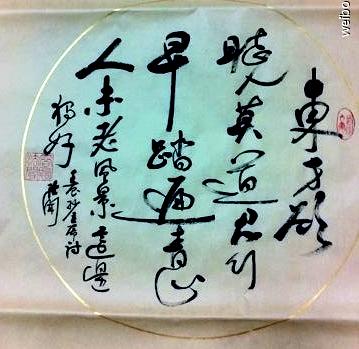 東方欲
曉莫道君行
早踏遍青山
人未老風景這邊
獨好
weibo